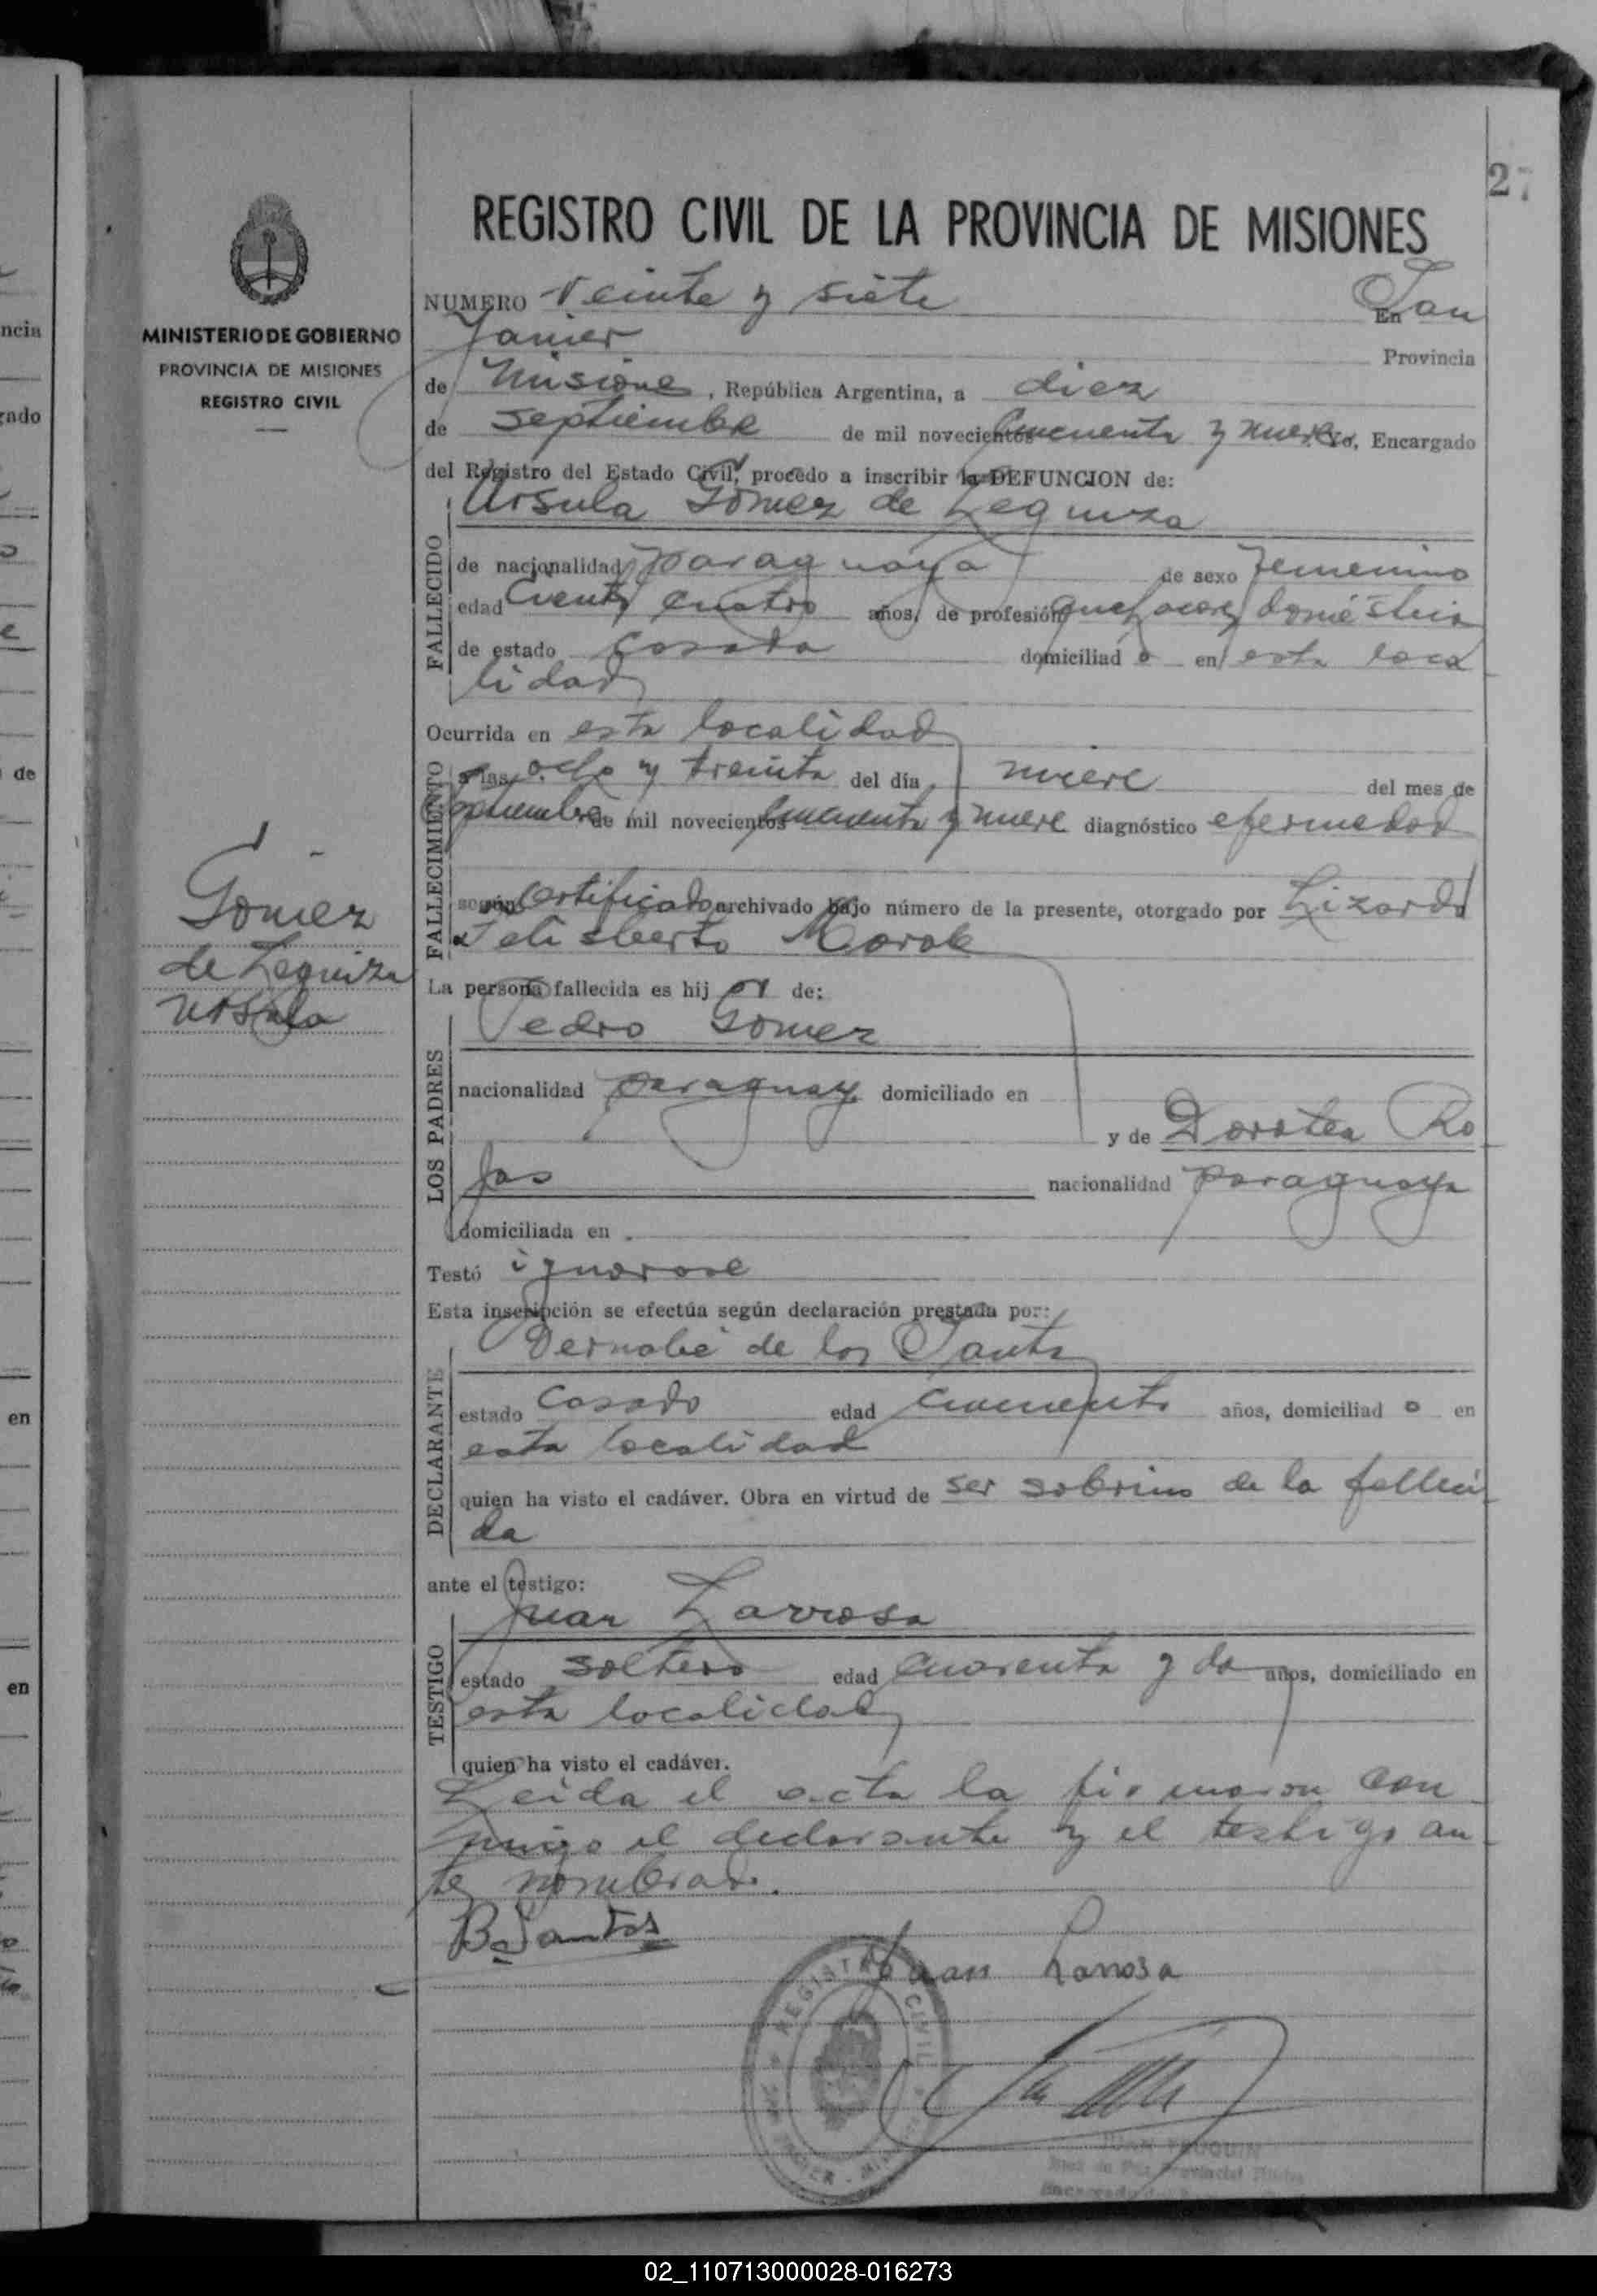 27
REGISTRO CIVIL DE LA PROVINCIA DE MISIONES
MINISTERIO DE GOBIERNO
PROVINCIA DE MISIONES
REGISTRO CIVIL
NUMERO Veinte y siete En San
Javier Provincia
de Misiones, República Argentina, a diez
de Septiembre de mil novecientos cincuenta y nueve, Encargado
del Registro del Estado Civil, procedo a inscribir la DEFUNCION de:
Ursula Gómez de Leguiza
FALLECIDO
de nacionalidad paraguaya de sexo femenino
edad ciento cuatro años, de profesión quehaceres doméstico
de estado casada domiciliad o en esta loca
lidad
Ocurrida en esta localidad
FALLECIMIENTO
a las ocho y treinta del día nueve del mes de
Septiembre de mil novecientos cincuenta y nueve diagnóstico efermedad
según certificado archivado bajo número de la presente, otorgado por Lizardo
Gómez
de Leguiza
Ursula
La persona fallecida es hij a de:
LOS PADRES
Pedro Gomez
nacionalidad paraguay domiciliado en
y de Dorotea Ro
jas nacionalidad paraguaya
domiciliada en
Testó ignorase
Esta inscripción se efectúa según declaración prestada por:
DECLARANTE
Bernabé de los Santos
estado casado edad cincuenta años, domiciliad o en
esta localidad
quien ha visto el cadáver. Obra en virtud de ser sobrino de la falleci
da
ante el testigo:
TESTIGO
Juan Larrosa
estado soltero edad cuarenta y dos años, domiciliado en
esta localidad
quien ha visto el cadáver.
Leida el acta la firmaron con
migo el declarante y el testigo an
tes nombrado.
B. Santos
Juan Larrosa
REGISTRO CIVIL
JUAN
Juez de Paz Provincial
Encargado
ncia
gado
de
en
en
02_110713000028-016273